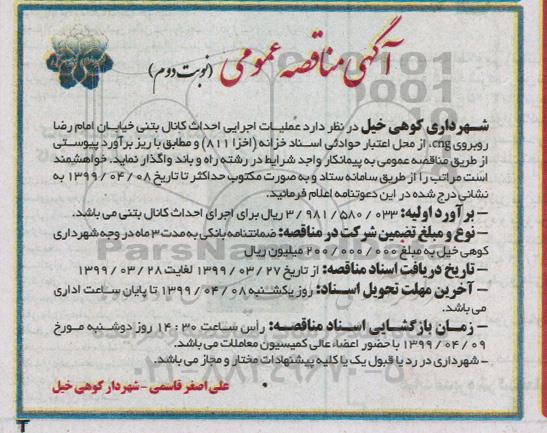 آگهی مناقصه عمومی (نوبت دوم)
شهرداری کوهی خیل در نظر دارد عملیات اجرایی احداث کانال بتنی خیابان امام رضا
روبروی cng، از محل اعتبار حوادثی اسناد خزانه (اخزا ۸۱۱) و مطابق با ریز برآورد پیوستی
از طریق مناقصه عمومی به پیمانکار واجد شرایط در رشته راه و باند واگذار نماید. خواهشمند
است مراتب را از طریق سامانه ستاد و به صورت مکتوب حداکثر تا تاریخ ۱۳۹۹/۰۴/۰۸ به
نشانی درج شده در این دعوتنامه اعلام فرمائید.
– برآورد اولیه: ۳/۹۸۱/۵۸۰/۰۳۳ ریال برای اجرای احداث کانال بتنی می باشد.
– نوع و مبلغ تضمین شرکت در مناقصه: ضمانتنامه بانکی به مدت ۳ ماه در وجه شهرداری
کوهی خیل به مبلغ ۲۰۰/۰۰۰/۰۰۰ میلیون ریال
– تاریخ دریافت اسناد مناقصه: از تاریخ ۱۳۹۹/۰۳/۲۷ لغایت ۱۳۹۹/۰۳/۲۸
– آخرین مهلت تحویل اسناد: روز یکشنبه ۱۳۹۹/۰۴/۰۸ تا پایان ساعت اداری
می باشد.
– زمان بازگشایی اسناد مناقصه: راس ساعت ۱۴:۳۰ روز دوشنبه مورخ
۱۳۹۹/۰۴/۰۹ با حضور اعضاء عالی کمیسیون معاملات می باشد.
– شهرداری در رد یا قبول یک یا کلیه پیشنهادات مختار و مجاز می باشد.
علی اصغر قاسمی – شهردار کوهی خیل